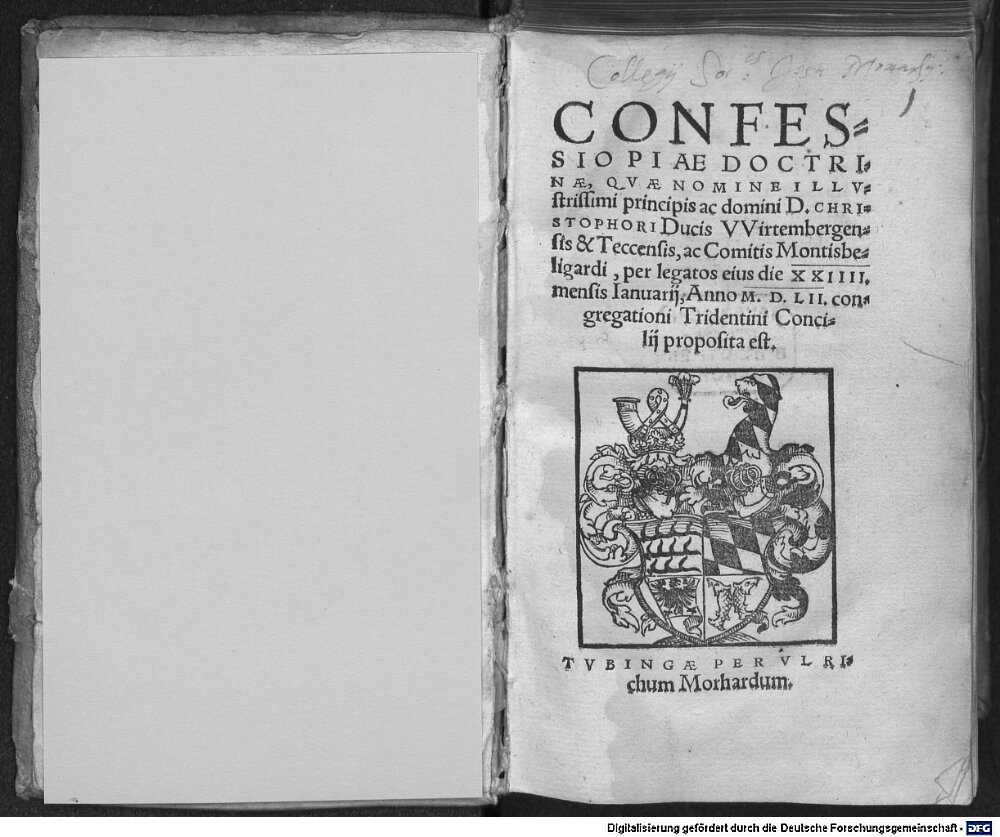 Collegij Soc:tis Jesu
CONFES⸗
SIO PIAE DOCTRI⸗
NÆ, QVÆ NOMINE ILLV⸗
ſtriſſimi principis ac domini D. CHRI⸗
STOPHORI Ducis VVirtembergen⸗
ſis & Teccenſis, ac Comitis Montisbe⸗
ligardi, per legatos eius die XXIIII.
menſis Ianuarij, Anno M. D. LII. con⸗
gregationi Tridentini Conci⸗
lij propoſita eſt.
TVBINGÆ PER VLRI⸗
chum Morhardum.
Digitalisierung gefördert durch die Deutsche Forschungsgemeinschaft - DFG